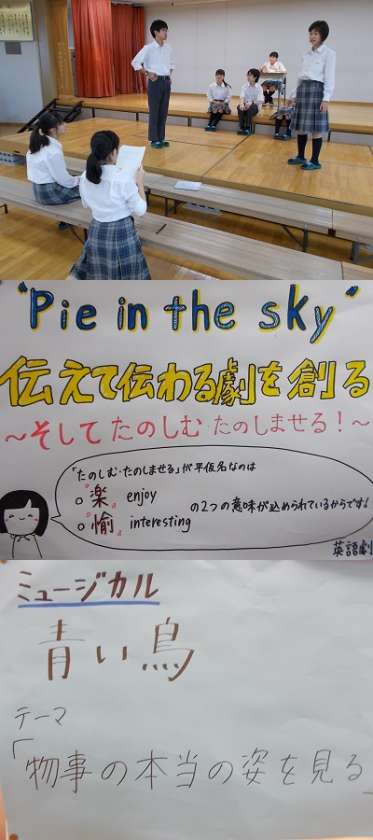 "Pie in the sky"
伝えて伝わる劇を創る
～そしてたのしむ たのしませる！～
「たのしむ・たのしませる」が平仮名なのは
○『楽』 enjoy
○『愉』 interesting
の2つの意味が込められているからです！
英語劇
ミュージカル
青い鳥
テーマ
「物事の本当の姿を見る」